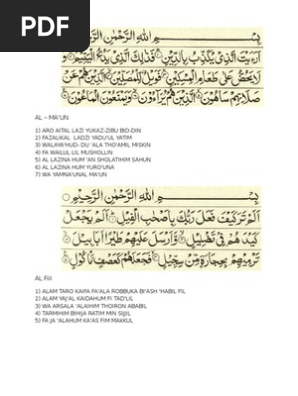 PDF
بِسْمِ اللهِ الرَّحْمٰنِ الرَّحِيْمِ
اَرَءَيْتَ الَّذِيْ يُكَذِّبُ بِالدِّيْنِ فَذٰلِكَ الَّذِيْ يَدُعُّ الْيَتِيْمَ وَ
لَا يَحُضُّ عَلٰى طَعَامِ الْمِسْكِيْنِ فَوَيْلٌ لِّلْمُصَلِّيْنَ الَّذِيْنَ هُمْ عَنْ
صَلَاتِهِمْ سَاهُوْنَ الَّذِيْنَ هُمْ يُرَآءُوْنَ وَيَمْنَعُوْنَ الْمَاعُوْنَ
AL – MA'UN
1) ARO AITAL LAZI YUKAZ-ZIBU BID-DIN
2) FAZALIKAL LADZI YADU'UL YATIM
3) WALAYA'HUD- DU 'ALA THO'AMIL MISKIN
4) FA WAILUL LIL MUSHOLLIN
5) AL LAZINA HUM 'AN SHOLATIHIM SAHUN
6) AL LAZINA HUM YURO'UNA
7) WA YAMNA'UNAL MA'UN
بِسْمِ اللهِ الرَّحْمٰنِ الرَّحِيْمِ
اَلَمْ تَرَ كَيْفَ فَعَلَ رَبُّكَ بِاَصْحٰبِ الْفِيْلِ اَلَمْ يَجْعَلْ
كَيْدَهُمْ فِيْ تَضْلِيْلٍ وَّاَرْسَلَ عَلَيْهِمْ طَيْرًا اَبَابِيْلَ
تَرْمِيْهِمْ بِحِجَارَةٍ مِّنْ سِجِّيْلٍ فَجَعَلَهُمْ كَعَصْفٍ مَّأْكُوْلٍ
AL Fiil
1) ALAM TARO KAIFA FA'ALA ROBBUKA BI'ASH 'HABIL FIL
2) ALAM YAJ'AL KAIDAHUM FI TAD'LIL
3) WA ARSALA 'ALAIHIM THOIRON ABABIL
4) TARMIHIM BIHIJA RATIM MIN SIJJIL
5) FA JA 'ALAHUM KA'AS FIM MAKKUL